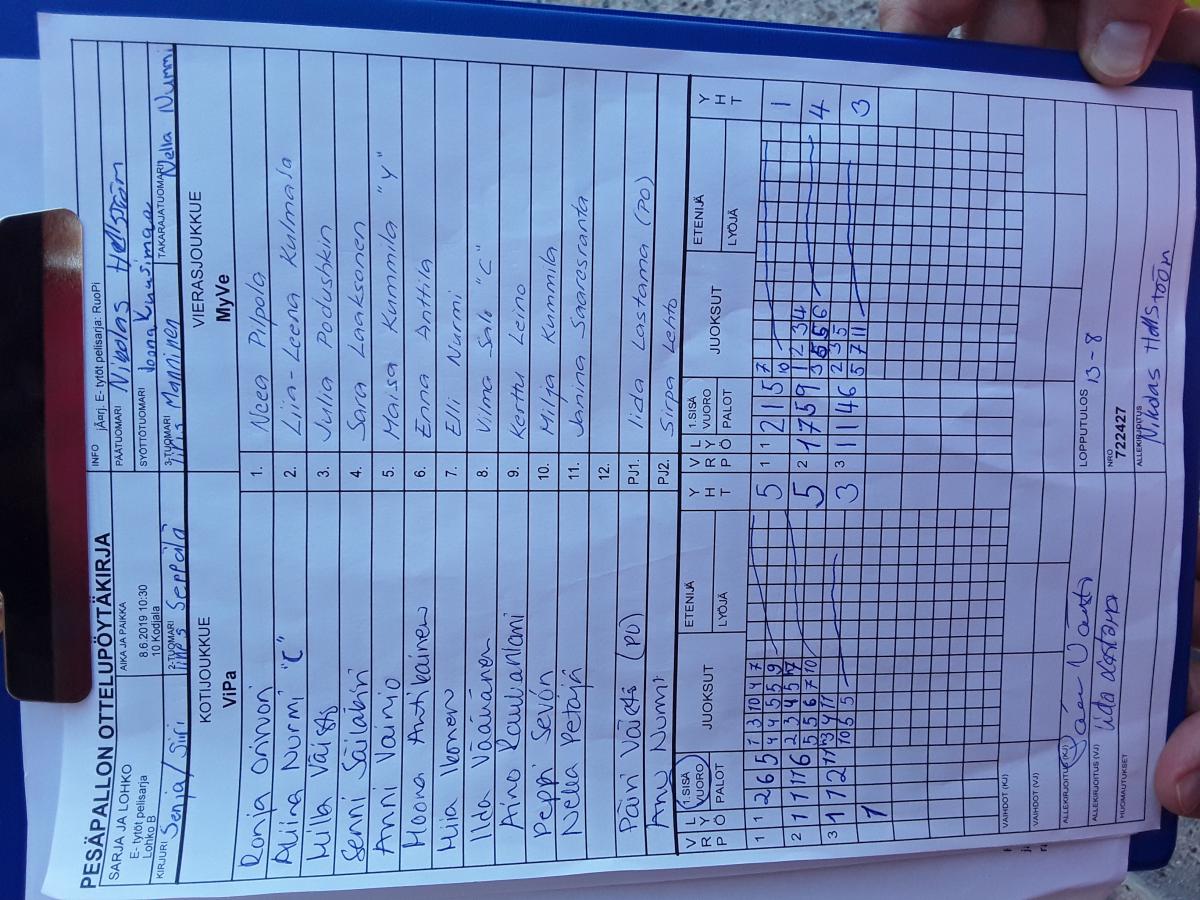 PESÄPALLON OTTELUPÖYTÄKIRJA
SARJA JA LOHKO
E- tytöt pelisarja
Lohko B
AIKA JA PAIKKA
8.6.2019 10:30
10 Kodjala
INFO jÃ¤rj. E- tytöt pelisarja: RuoPi
PÄÄTUOMARI Nikolas Hellström
SYÖTTÖTUOMARI Joona Kuusimaa
KIRJURI Senja/Siiri
2-TUOMARI Seppälä
3-TUOMARI Manninen
TAKARAJATUOMARI Nella Nurmi
KOTIJOUKKUE
ViPa
VIERASJOUKKUE
MyVe
Ronja Orinvori 1. Neea Pilpola
Aliina Nurmi "C" 2. Liia-Leena Kulmala
Milla Väistö 3. Julia Podushkin
Senni Säiläkivi 4. Sara Laaksonen
Anni Vainio 5. Maisa Kummila "Y"
Moona Antikainen 6. Enna Anttila
Miia Ikonen 7. Elli Nurmi
Ilda Väänänen 8. Vilma Salo "C"
Aino Rauvanlami 9. Kerttu Leino
Peppi Sevón 10. Milja Kummila
Nella Petäjä 11. Janina Saaresranta
12.
Päivi Väistö (PO) PJ1. Iida Lastama (PO)
Anu Nurmi PJ2. Sirpa Lehto
V R P L Y Ö 1.SISÄ VUORO PALOT JUOKSUT ETENIJÄ LYÖJÄ Y H T
V R P L Y Ö 1.SISÄ VUORO PALOT JUOKSUT ETENIJÄ LYÖJÄ Y H T
1 1 2 6 5 1 3 10 4 7 5 1 1 2 1 5 7 1
4 4 5 5 9
2 1 11 11 6 2 3 4 5 5 2 1 7 5 9 1 2 3 4 4
5 5 6 7 10 3 5 5 6
3 1 7 2 11 3 4 11 3 3 1 1 4 6 2 3 5 3
10 5 5 5 7 11
1
VAIHDOT (KJ)
VAIHDOT (VJ)
ALLEKIRJOITUS (KJ) Päivi Väistö
LOPPUTULOS 13-8
ALLEKIRJOITUS (VJ) Iida Lastama
NRO
722427
HUOMAUTUKSET
ALLEKIRJOITUS
Nikolas Hellström